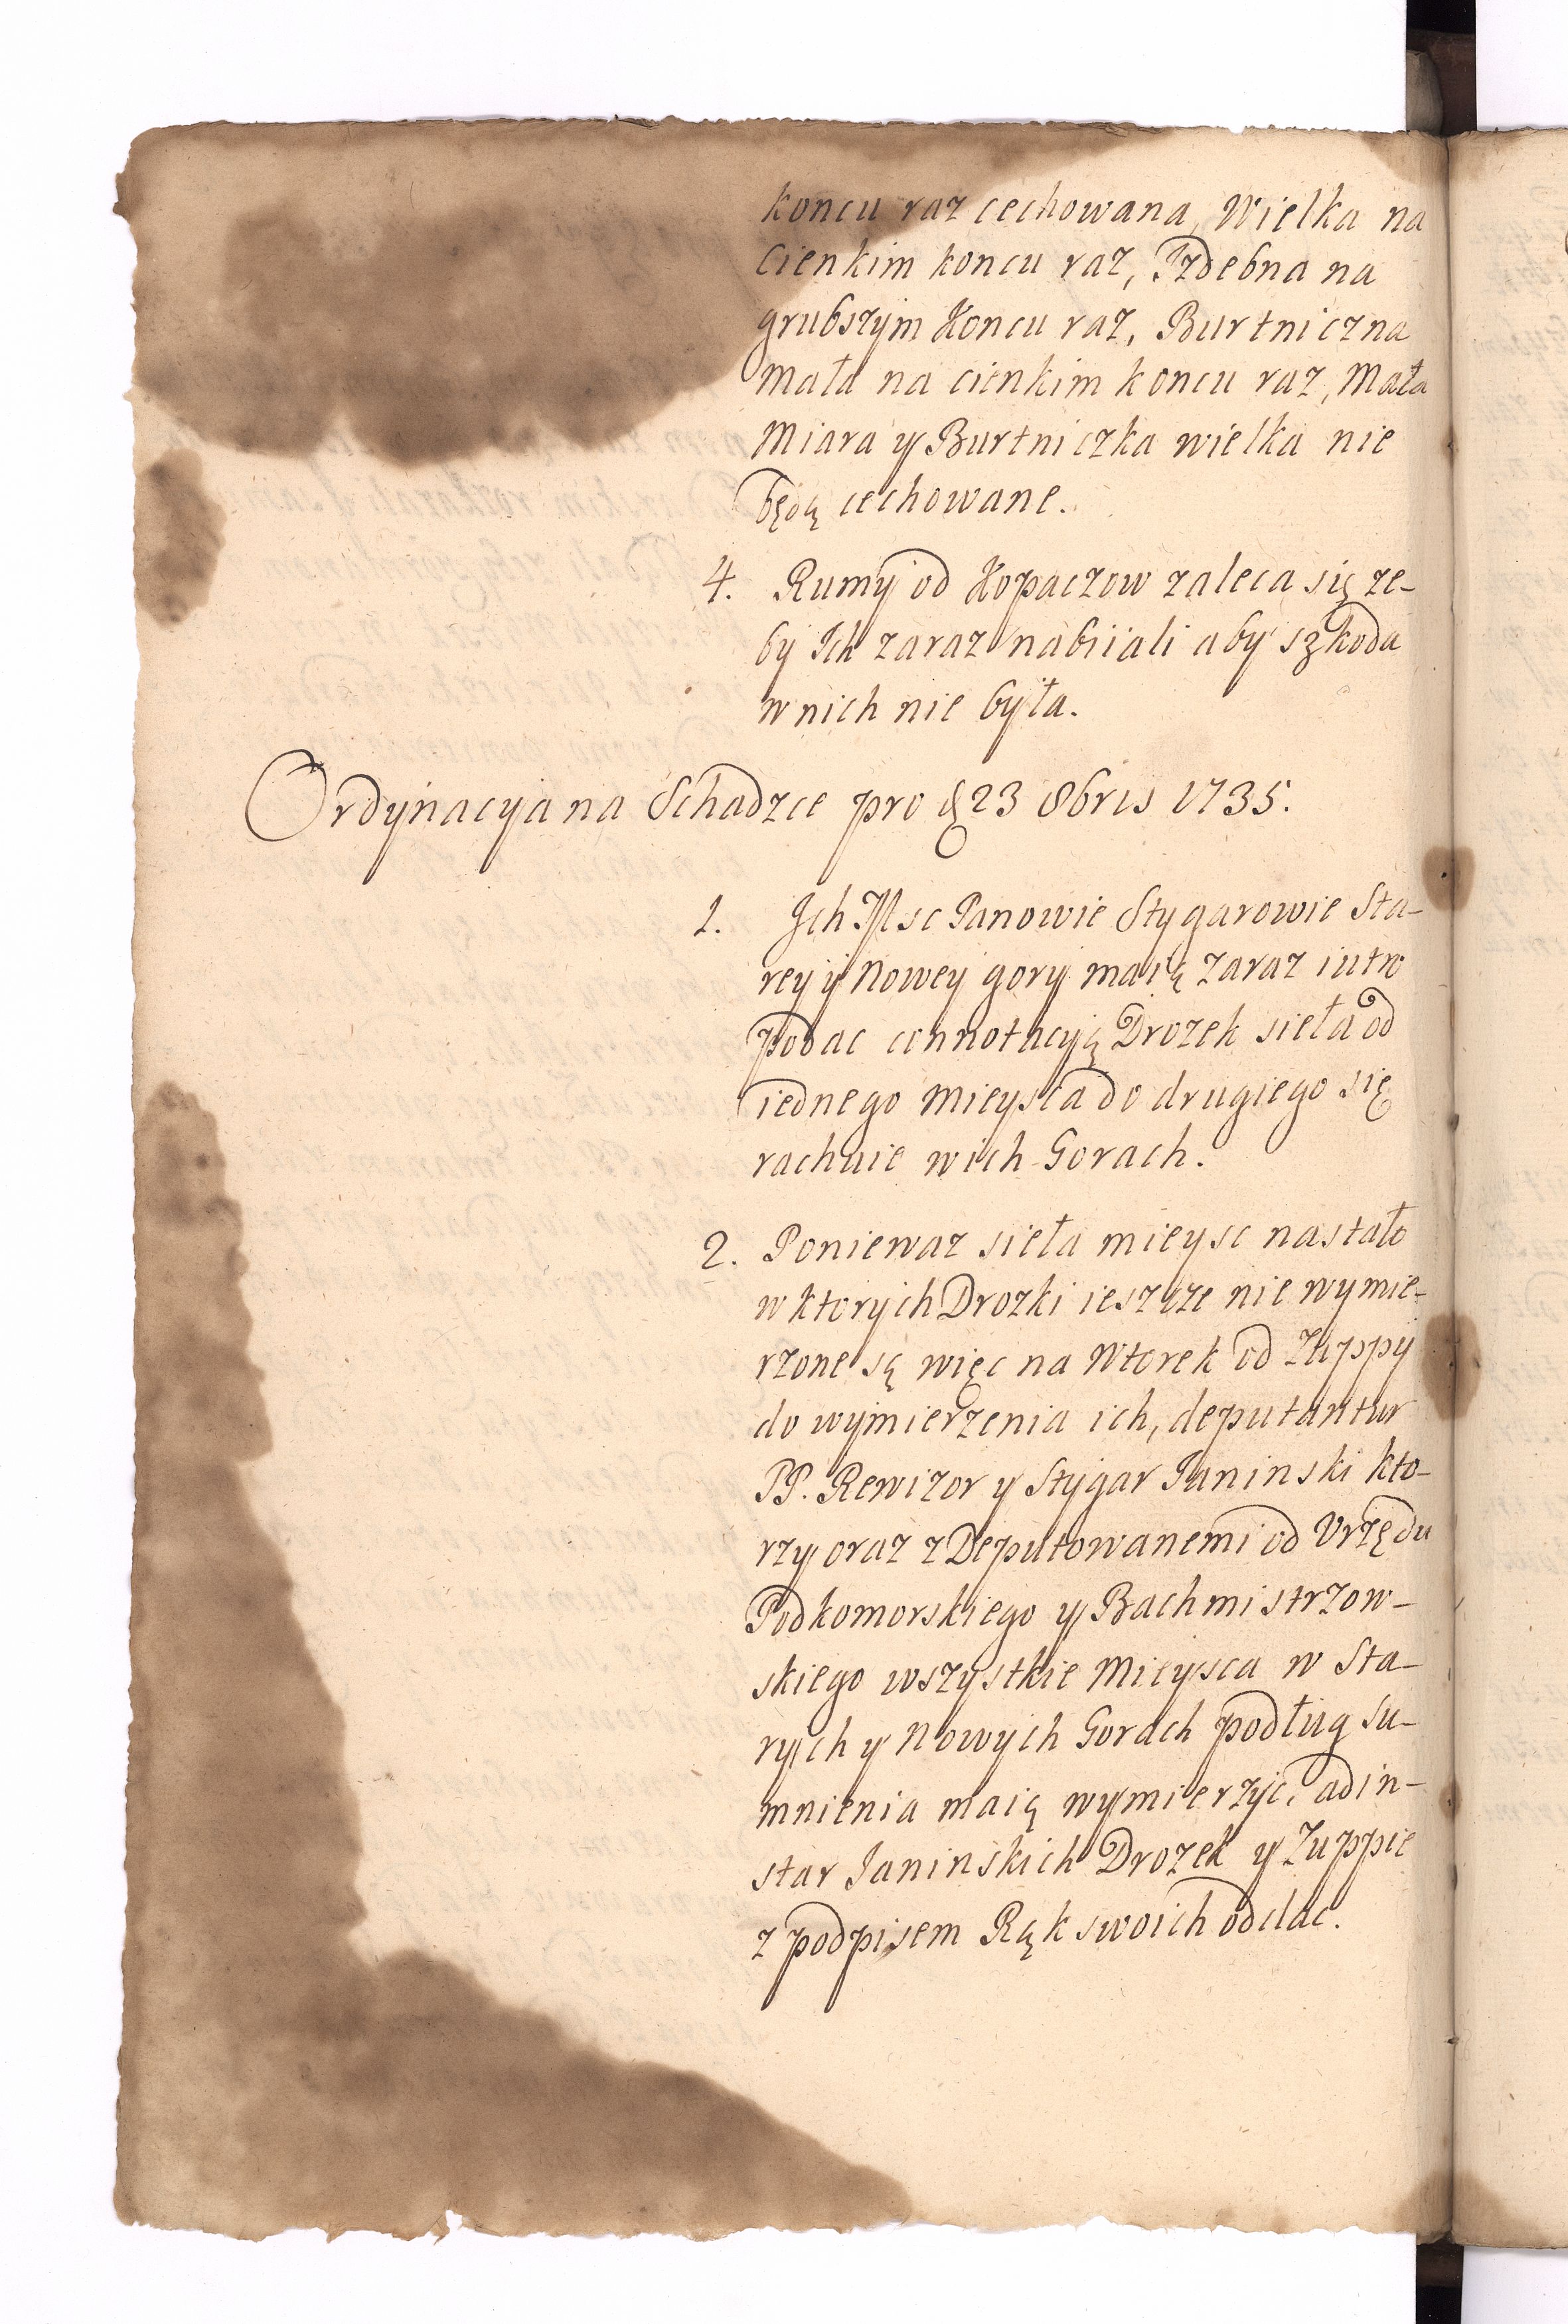 koncu raz cechowana, Wielka na
cienkim koncu raz, Izdebna na
grubszym Koncu raz, Burtniczna
mała na cienkim koncu raz, Mała
Miara y Burtniczka wielka nie
będą cechowane.
4. Rumy od Kopaczow zaleca się ze-
by Ich zaraz nabiiali aby szkoda
w nich nie była.
Ordynacya na Schadzce pro d 23 8bris 1735.
1. Ich Msc Panowie Stygarowie Sta-
rey y Nowey gory maią zaraz iutro
podac connotacyią Drozek sieła od
iednego mieysca do drugiego się
rachuie w ich Gorach.
2. Poniewaz sieła mieysc nastało
w ktorych Drozki ieszcze nie wymie-
rzone są więc na Wtorek od Zuppy
do wymierzenia ich, deputantur
PP. Rewizor y Stygar Ianinski kto-
rzy oraz z Deputowanemi od Vrzędu
Podkomorskiego y Bachmistrzow-
skiego wszystkie Mieysca w Sta-
rych y Nowych Gorach podług su-
mnienia maią wymierzyc, ad in-
star Ianinskich Drozek y Zuppie
z podpisem Rąk swoich oddac.